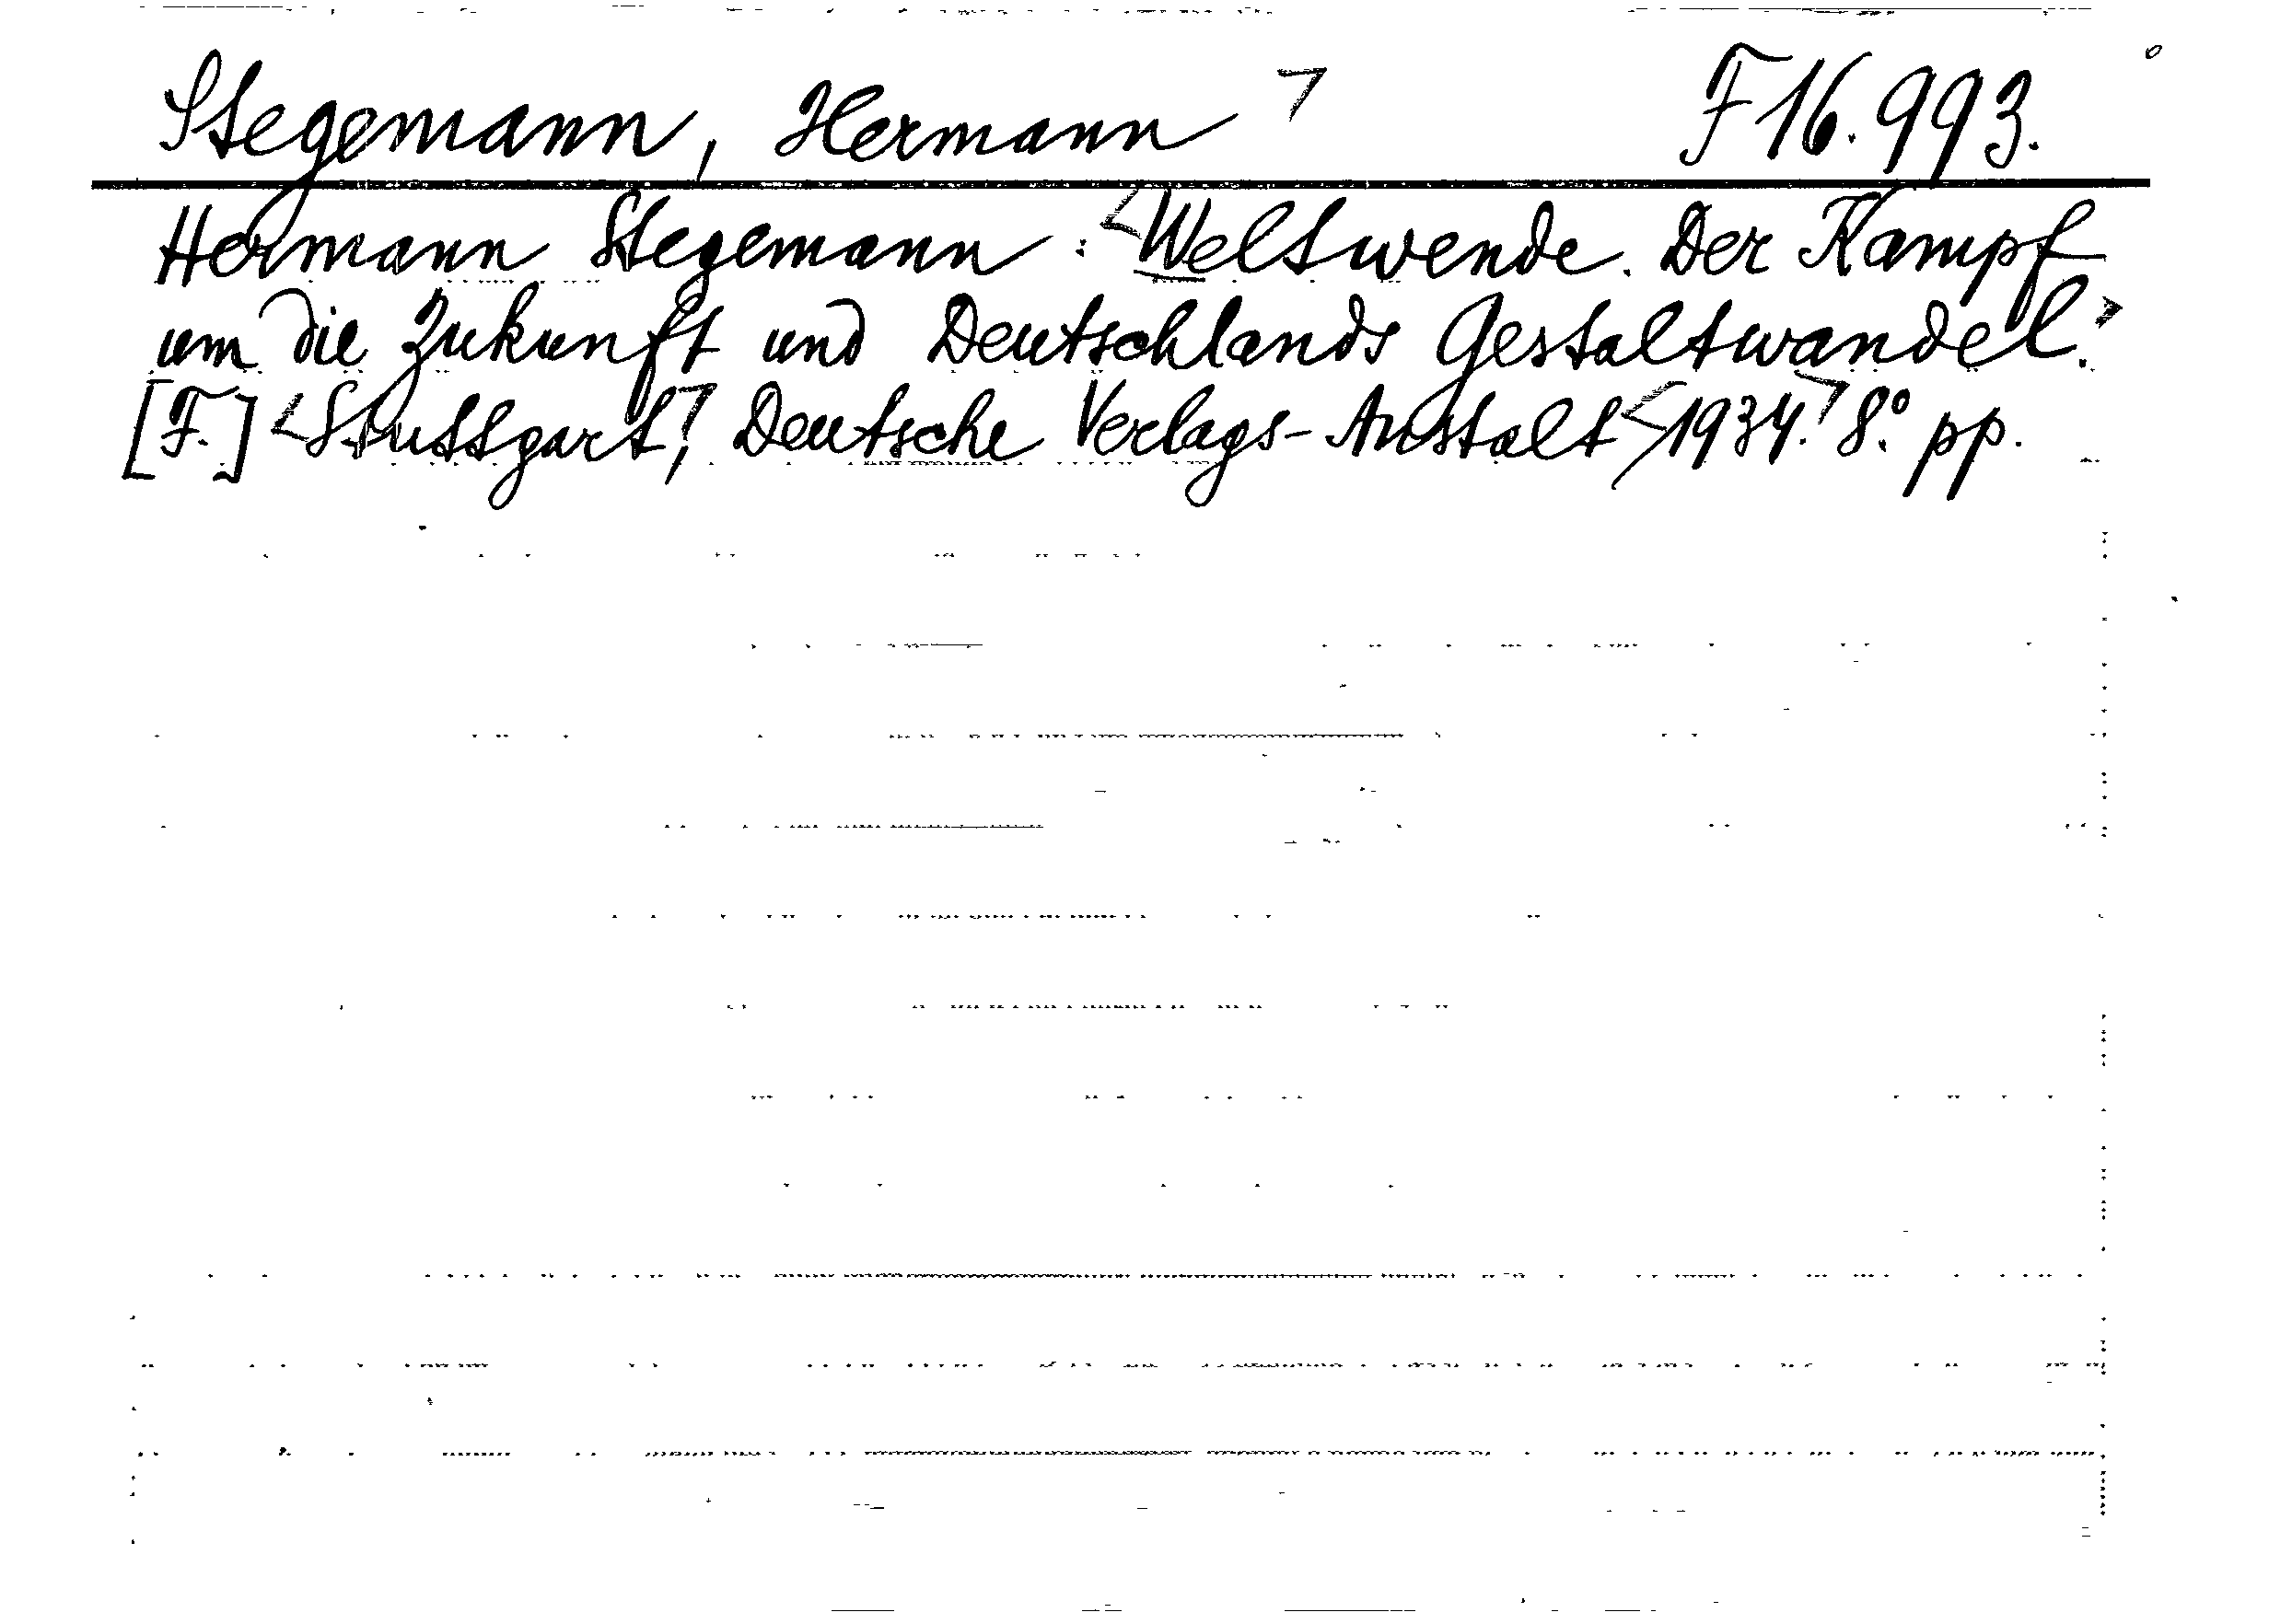 Stegemann, Hermann F 16.993.
Hermann Stegemann: Weltwende. Der Kampf
um die Zukunft und Deutschlands Gestaltwandel.
[F.] Stuttgart, Deutsche Verlags-Anstalt, 1934. 8.° pp.